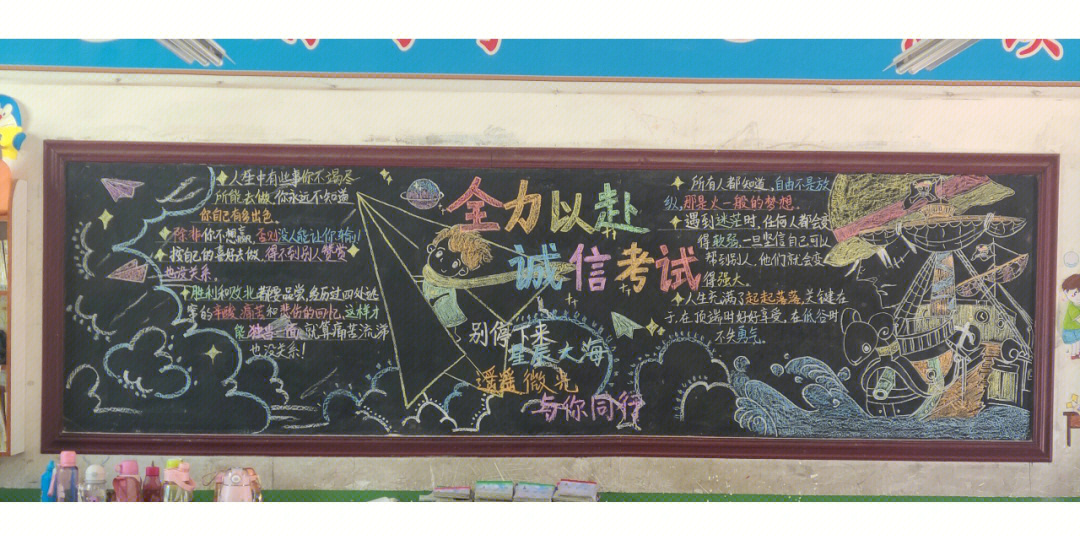 人生中有些事你不竭尽
所能去做,你永远不知道
你自己有多出色。
除非你不想赢,否则没人能让你输!
按自己的喜好去做,得不到别人赞赏
也没关系。
胜利和败北都要品尝,经历过四处逃
窜的辛酸,痛苦和悲伤的回忆,这样才
能独当一面,就算痛苦流涕
也没关系!
全力以赴
诚信考试
别停下来
星辰大海
遥遥微光
与你同行
所有人都知道,自由不是放
纵,那是火一般的梦想。
遇到迷茫时,任何人都会变
得软弱,一旦坚信自己可以
帮到别人,他们就会变
得强大。
人生充满了起起落落,关键在
于,在顶端时好好享受,在低谷时
不失勇气。